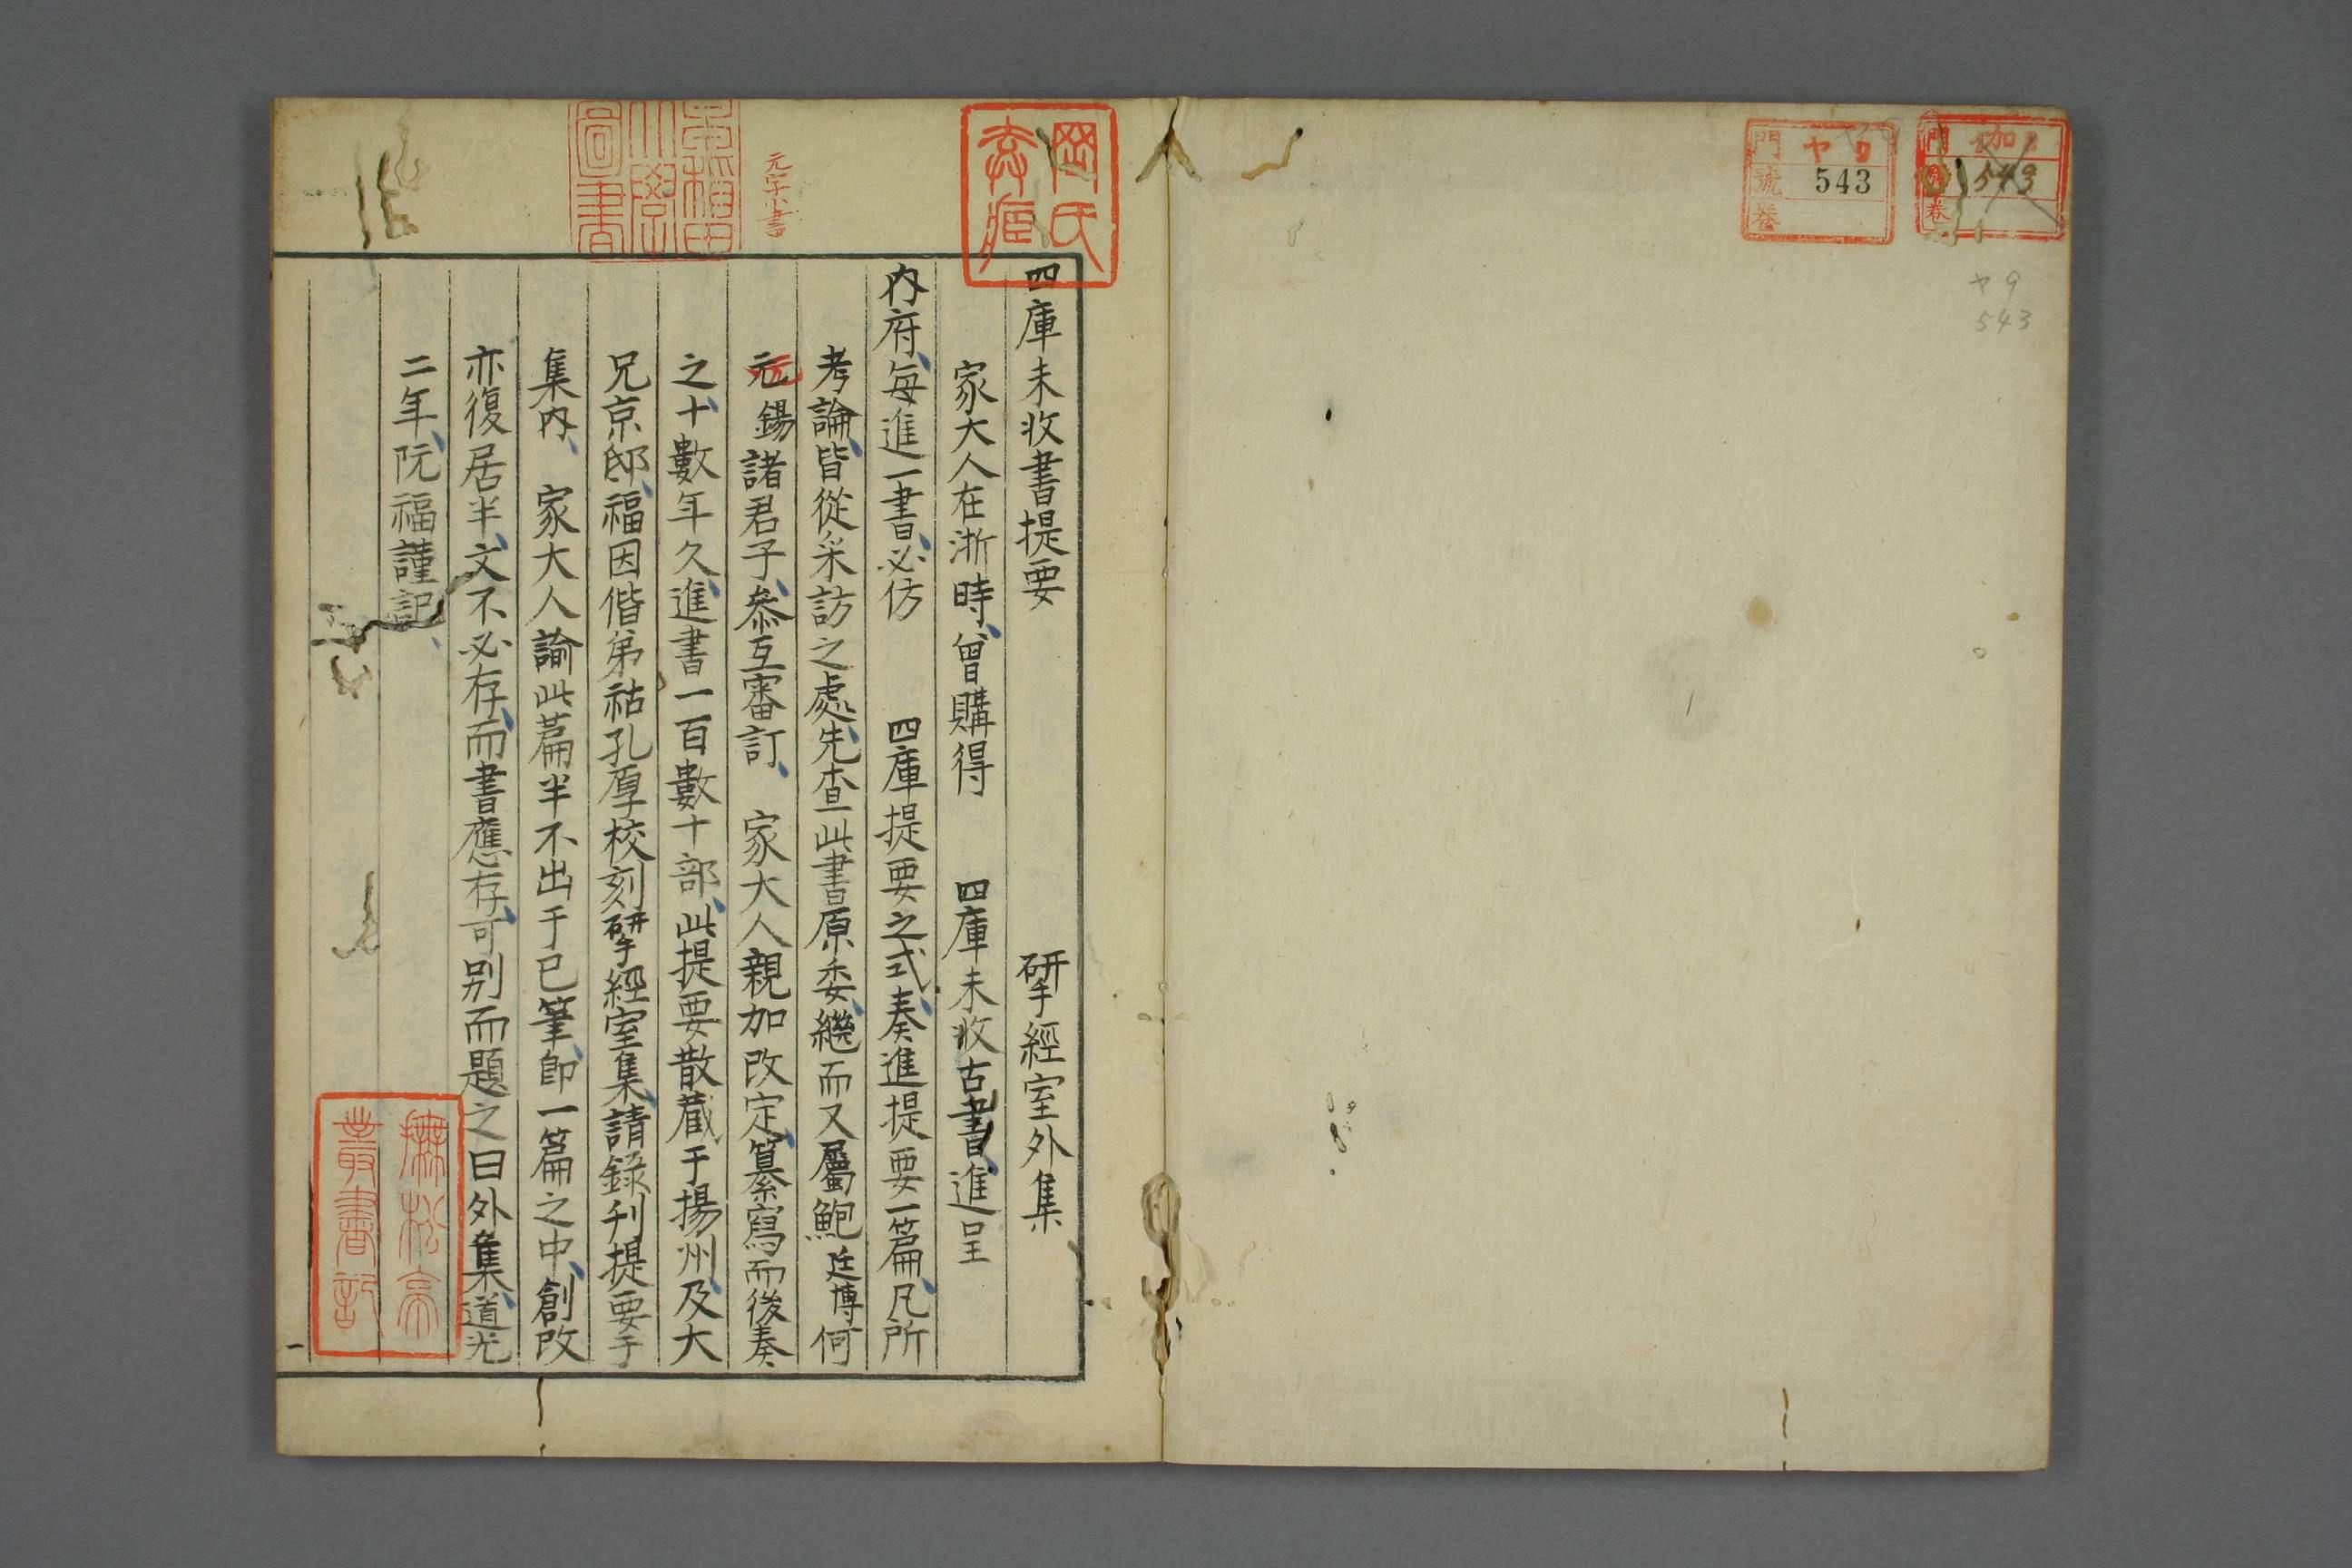 加
門
號
卷
543
ヤ9
門
號
卷
543
ヤ9
543
岡氏
早稲田
大學
圖書
元字小書
四庫未收書提要　揅經室外集
家大人在浙時、曾購得　四庫未收古書、進呈
内府、每進一書、必仿　四庫提要之式、奏進提要一篇、凡所
考論、皆從采訪之處、先查此書原委、繼而又屬鮑廷博何
元錫諸君子、叅互審訂、家大人親加改定、纂寫而後奏
之、十數年久、進書一百數十部、此提要散藏于揚州、及大
兄京邸、福因偕弟祜孔厚校刻揅經室集、請錄刊提要于
集内、家大人諭此篇半不出于已筆、即一篇之中、創改
亦復居半、文不必存、而書應存、可别而題之曰外集、道光
二年、阮福謹記、
叢書記
一